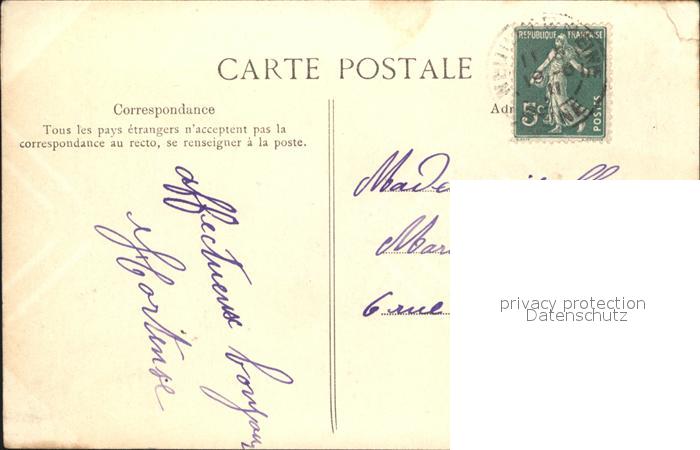 CARTE POSTALE
REPUBLIQUE FRANÇAISE
5c
POSTES
SEINE
Correspondance
Tous les pays étrangers n'acceptent pas la
correspondance au recto, se renseigner à la poste.
Adr
affectueux bonjour
Hortense
Made
Mar
6 rue
privacy protection
Datenschutz